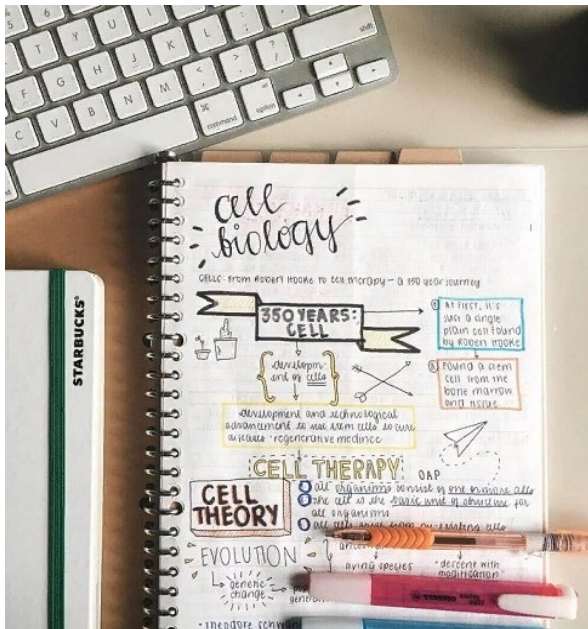 5 6
T Y U I
F G H J K L
shift
C V B N M < , > . ? /
⌘
command
option
STARBUCKS®
cell
biology
CELLS - From Robert Hooke to cell therapy - a 350 year journey
350 YEARS:
CELL
① At first, it's
just a single
plain cell found
by Robert Hooke
developm-
ent of cells
② Found a stem
cell from the
bone marrow
and tissue
development and technological
advancement to use stem cells to cure
diseases - regenerative medince
CELL THERAPY
OAP
CELL
THEORY
① all organisms consist of one or more cells
② the cell is the basic unit of structure for
all organisms
③ all cells from pre-existing cells
EVOLUTION
living species
descent with
modification
genetic
change
STABILO
• Theodore Schwan